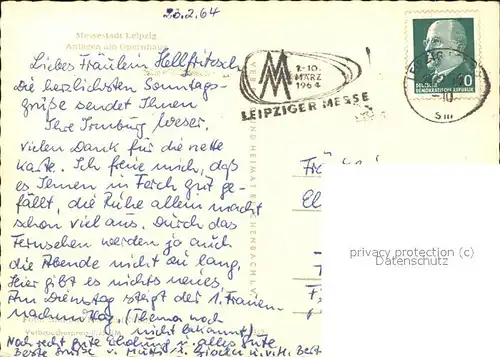 20.2.64
Messestadt Leipzig
Anlagen am Opernhaus
Liebes Fräulein Hellfritzsch
Die herzlichsten Sonntags-
grüße sendet Ihnen
Ihre Irmburg Weser.
Vielen Dank für die nette
Karte. Ich freue mich, daß
es Ihnen in Ferch gut ge-
fällt, die Ruhe allein macht
schon viel aus. Durch das
Fernsehen werden ja auch
die Abende nicht zu lang.
Hier gibt es nichts neues.
Am Dienstag steigt der 1. Frauen-
nachmittag. (Thema noch
nicht bekannt)
Noch recht gute Erholung u. alles Gute
Beste Grüße v. Mutti
1.-10.
MÄRZ
1964
LEIPZIGER MESSE
DEUTSCHE
DEMOKRATISCHE REPUBLIK
10
Frä
El
privacy protection (c)
Datenschutz